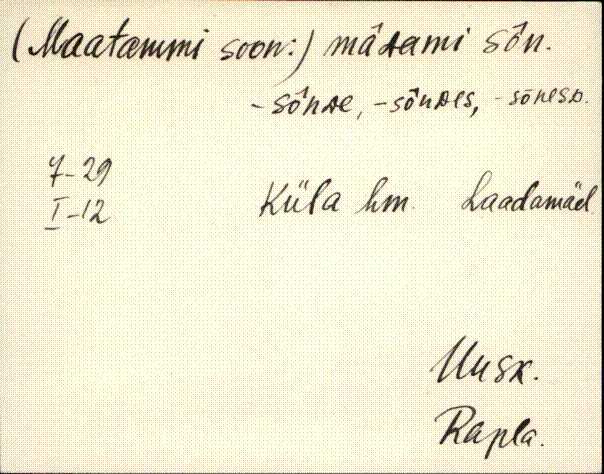 (Maatammi soon:) mâᴅami sôn.
-sônᴅe, -sônᴅes, -sônesᴅ.
7-29
I-12
Küla hm. Laadamäel
Uusk.
Rapla.